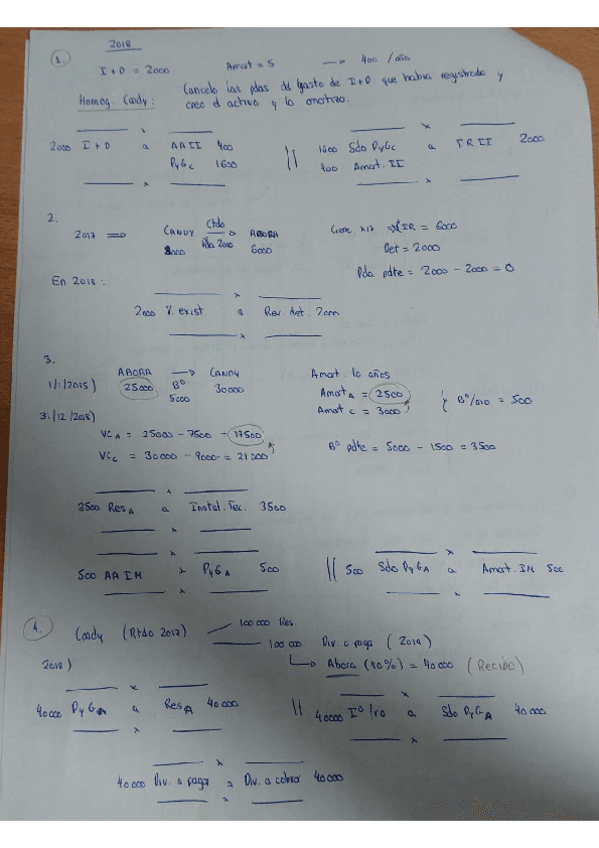 2018
1. I + D = 2000 Amort = 5 → 400 / año
Homog. Candy: Cancelo las pdas del gasto de I+D que había registrado y
creo el activo y lo amortizo.
2000 I + D a AAII 400 || 1600 Sdo PyGc a TRII 2000
PyGc 1600 400 Amort. II
2.
2017 ⇒ CANDY Ctdo → ABORA
8000 Pda 2000 6000
Pda. pdte = 2000 - 2000 = 0
Det = 2000
En 2018:
2000 V. exist a Rev. det. 2000
3.
ABORA → CANDY Amort. 10 años
1/1/2015) 25000 Bº 30000
5000
Amort A = 2500
Amort C = 3000 } Bº/año = 500
31/12/2018)
VC A = 25000 - 7500 = 17500
VC C = 30000 - 9000 = 21000
Bº pdte = 5000 - 1500 = 3500
3500 Res A a Instal. Tec. 3500
500 AAIM a PyG A 500 || 500 Sdo PyG A a Amort. IM 500
4. Candy (Rtdo 2017) 100 000 Res.
100 000 Div. a pagar (2019)
→ Abora (40%) = 40 000 (Recibe)
2018)
40 000 PyG A a Res A 40 000 || 40 000 Iº fro a Sdo PyG A 40 000
40 000 Div. a pagar a Div. a cobrar 40 000